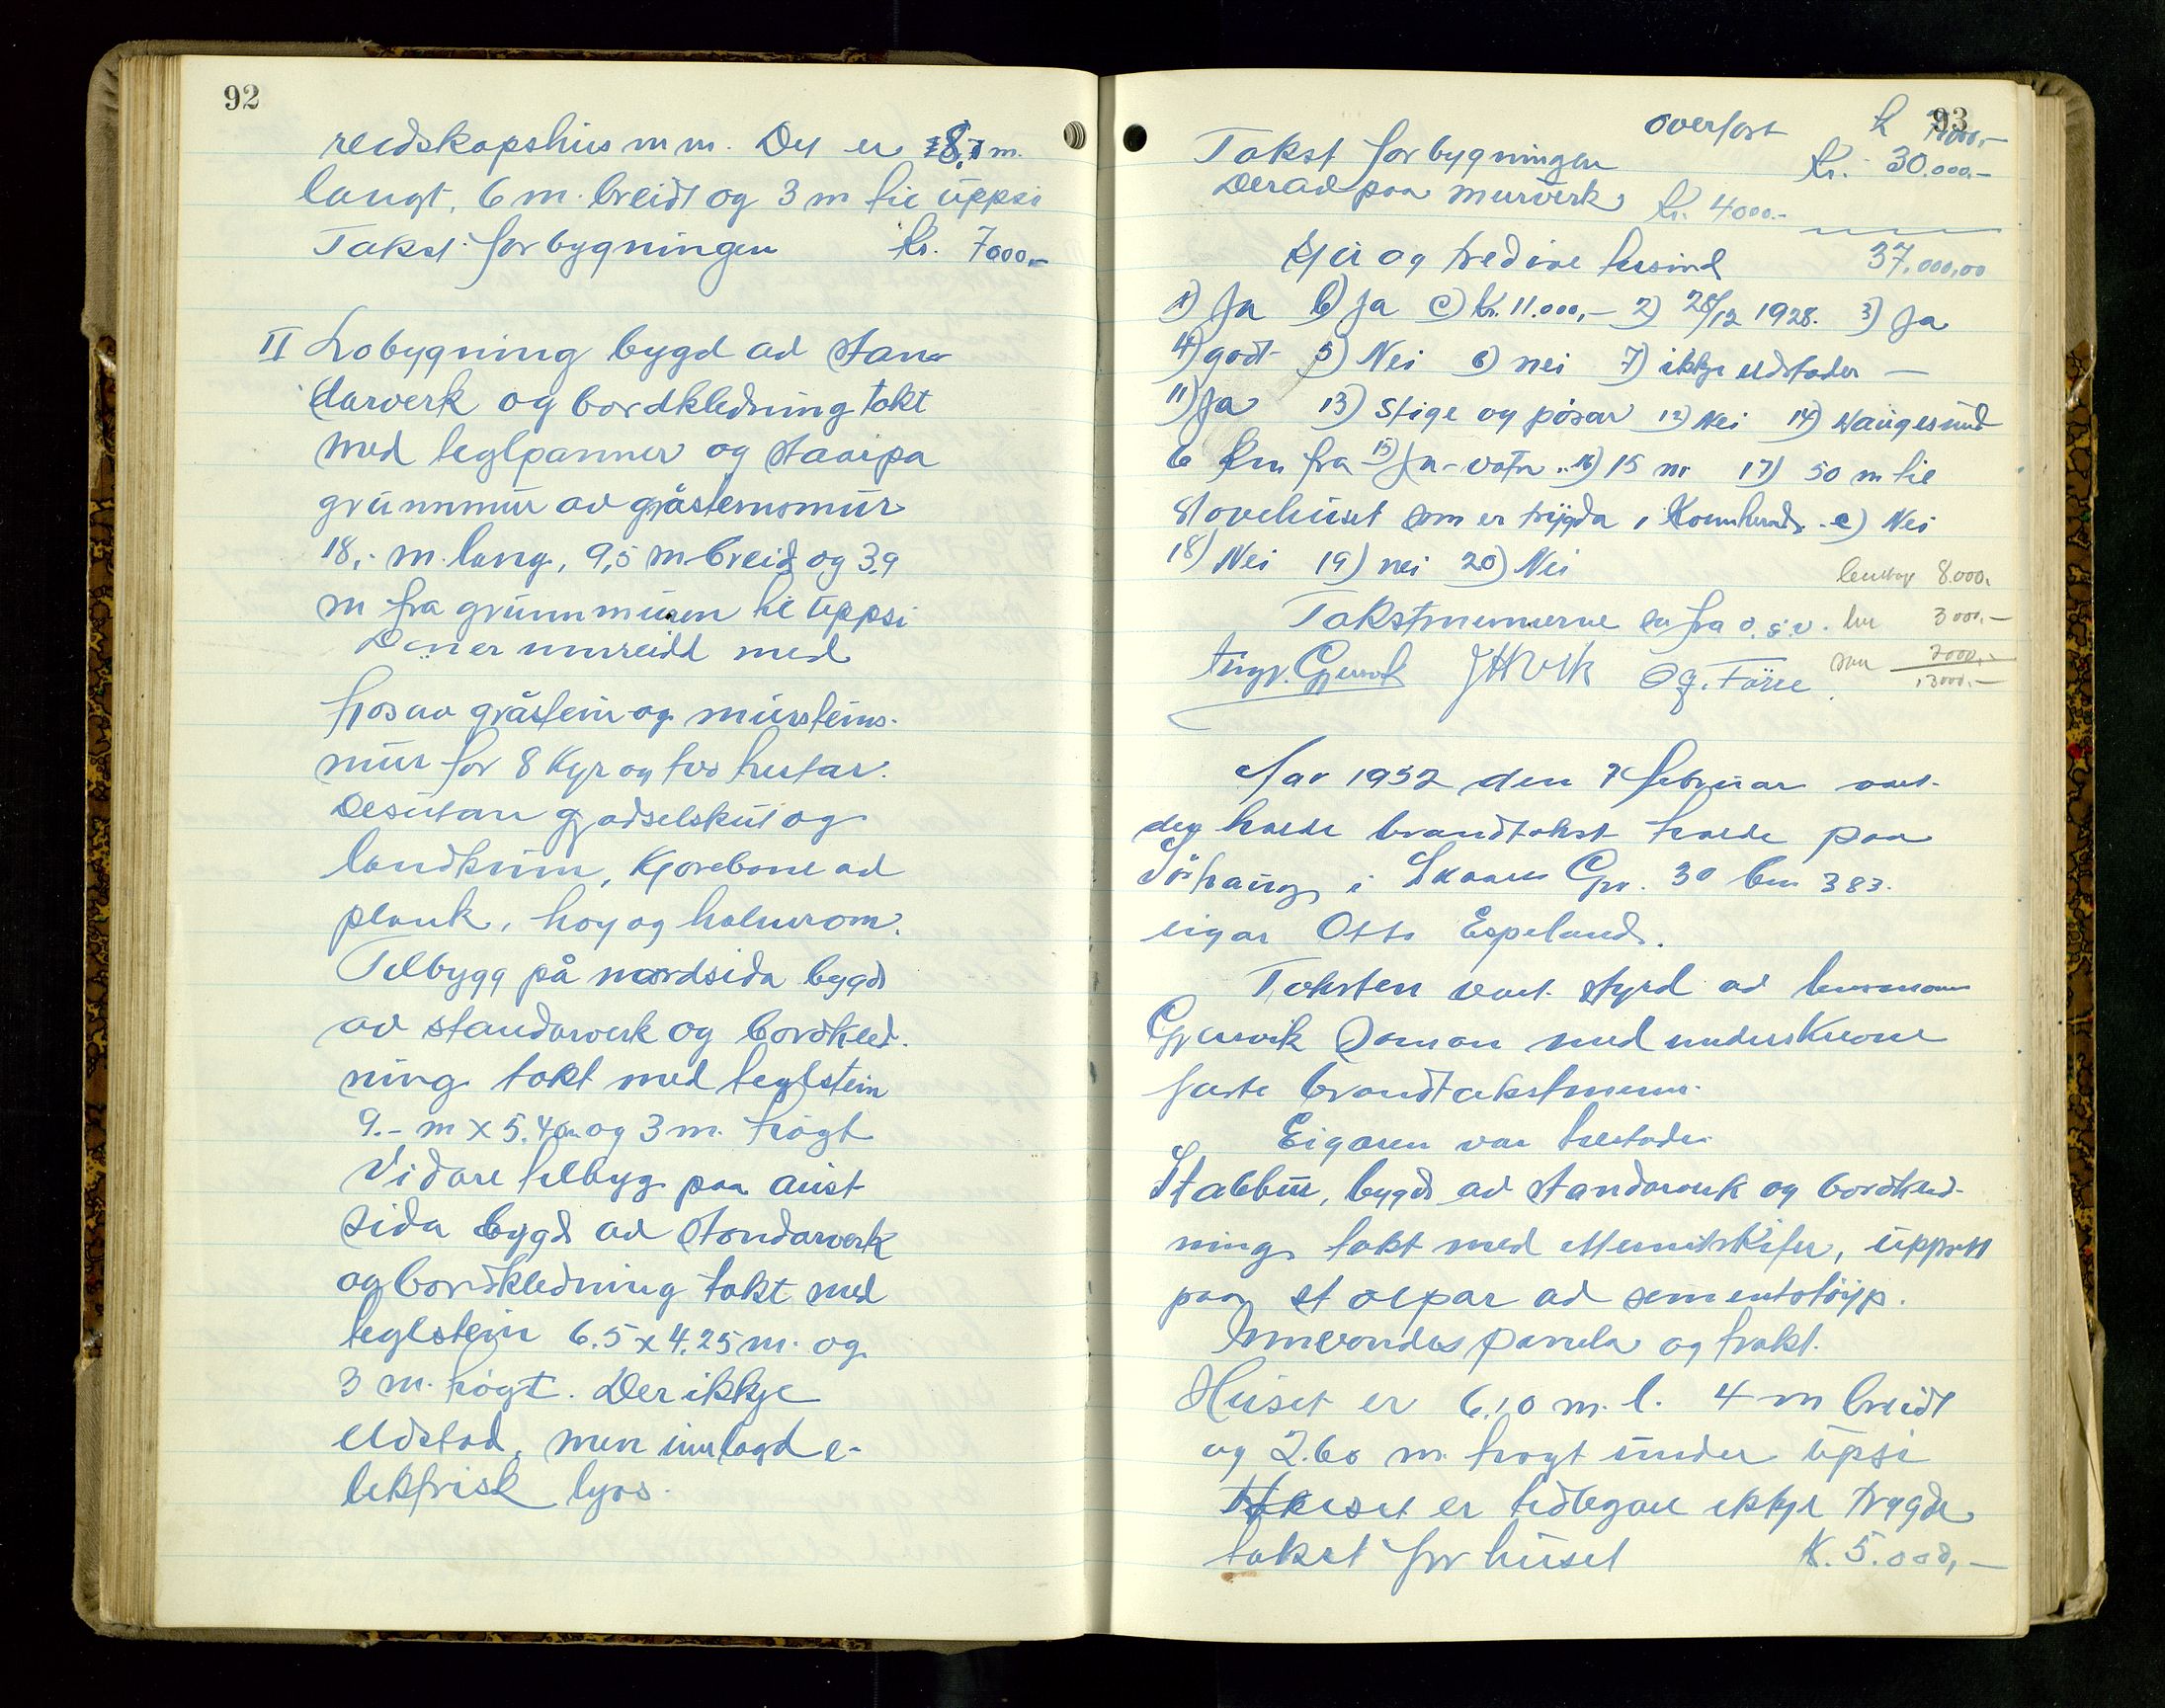 92
reidskapshus m m. De er 8,1 m.
langt, 6 m. breidt og 3 m til uppsi
Takst for bygningen kr. 7000,-
II Lobygning bygd av stan-
darverk og bordkledning takt
med teglpanner og staaipa
grunnmur av gråsteinsmur
18,- m. lang, 9,5 m breid og 3,9
m fra grunnmuren til uppsi
Den er innreidd med
fjos av gråstein og mursteins-
mur for 8 Kyr og tvo hestar.
Desutan gjødselskut og
landkum, Kjørebone av
plank, høy og halmrom.
Tilbygg på nordsida bygd
av standarverk og bordkled-
ning takt med teglstein
9.- m x 5.40 m og 3 m. høgt
Vidare tilbyg paa aust
sida bygd av standarverk
og bordkledning takt med
teglstein 6.5 x 4.25 m. og
3 m. høgt. Der ikkje
eldstad, men innlagd e-
lektrisk lyos.
93
overført k 7000,-
Takst for bygningen kr. 30.000.-
Derav paa murverk kr. 4000.-
Sju og tredive tusind 37.000,00
a) Ja b) Ja c) kr. 11.000,- 2) 28/12 1928. 3) Ja
4) godt 5) Nei 6) nei 7) ikkje eldstader —
11) Ja 13) Stige og pøsar 12) Nei 14) Haugesund
6 km fra 15) Ja - vatn. 16) 15 m 17) 50 m til
Stovehuset som er trygda i Kornhus. e) Nei
18) Nei 19) nei 20) Nei
8.000.
Takstmennerne er fra o.s.v. 3000.-
Ingv. Gjervik JHVik Og. Førre 2000,-
13000.-
Aar 1952 den 7 februar vart
dey halde brandtakst halde paa
Sørhaug i Skaare Gnr. 30 bn 383.
eigar Otto Espeland.
Taksten vart styrd av lensmann
Gjervik saman med underskrevne
faste brandtakstmenn.
Eigaren var tilstade.
Stabbur, bygd av standarverk og bordkled-
ning takt med eternitskifer, uppsett
paa stolpar av sementstøyp.
Innvendes panela og trakt.
Huset er 6.10 m. l. 4 m breidt
og 2.60 m. høgt under upsi
Huset er tidlegare ikkje trygda
takst for huset K. 5.000,-